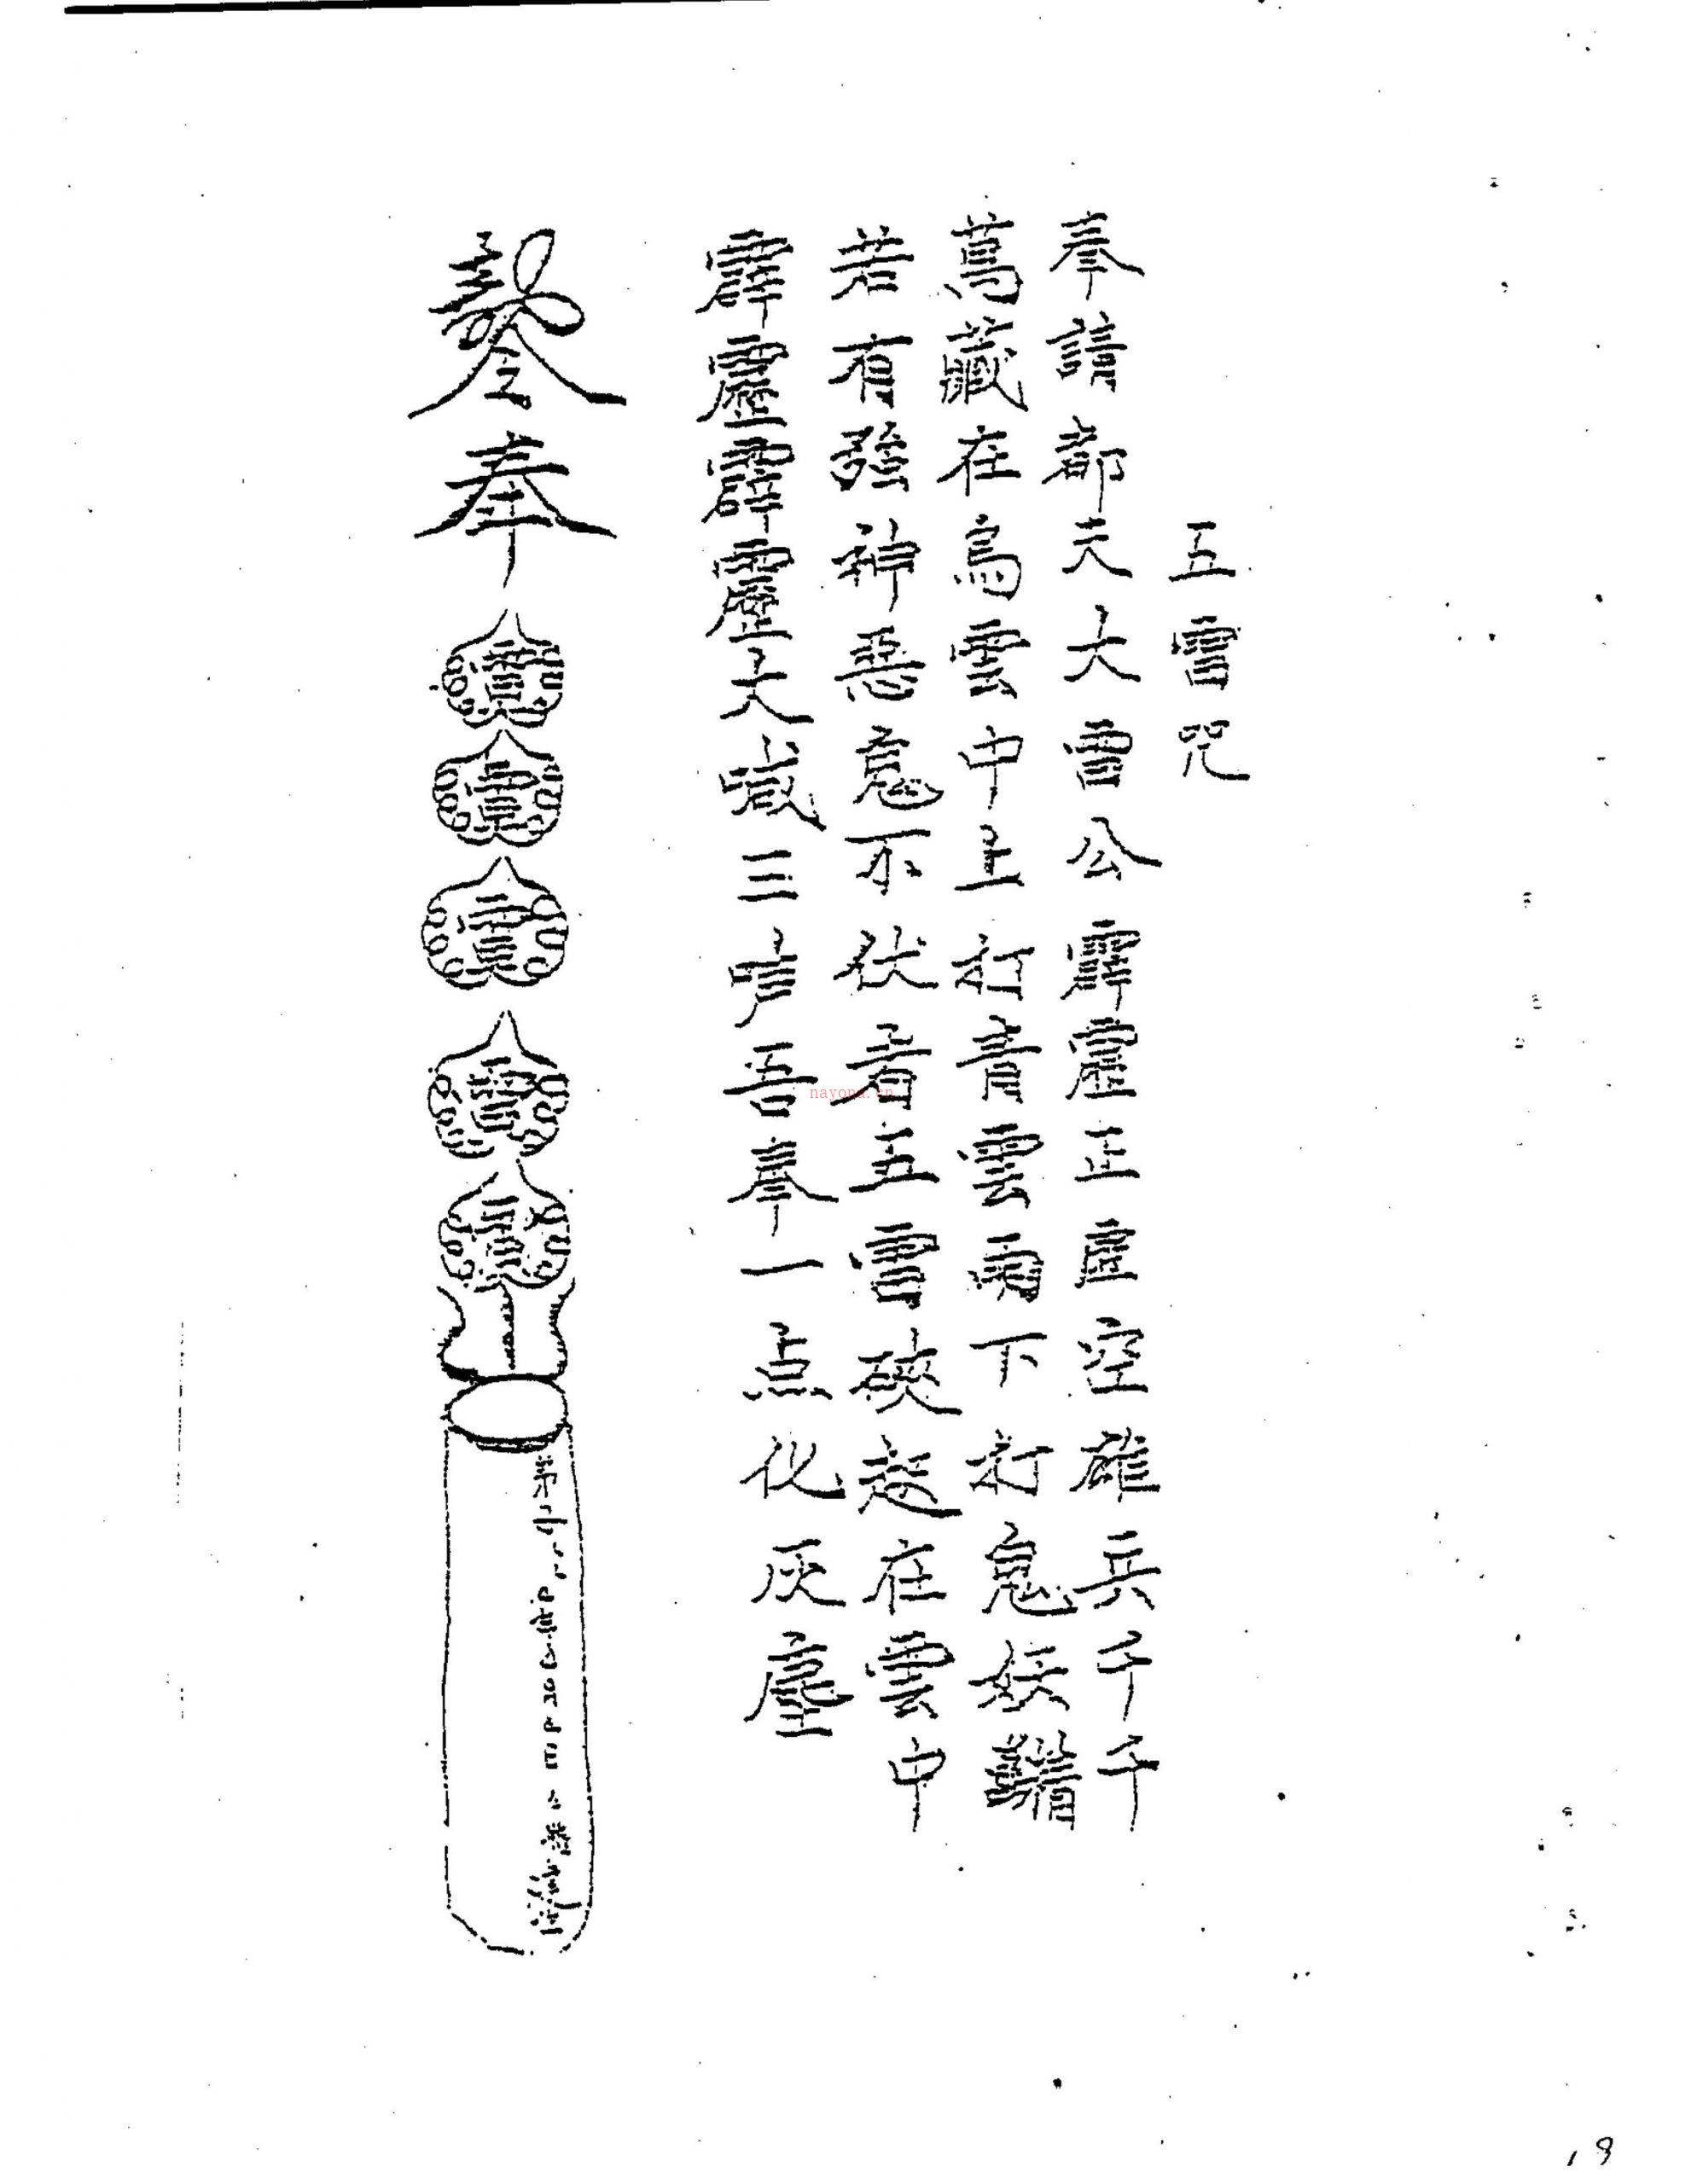 五雷咒
奉請都天大雷公霹靂正虛空雄兵千千
萬藏在烏雲中上打青雲雨下打鬼妖
若有強神惡鬼不伏者五雷硤起在雲中
霹靂霹靂大喊三声吾奉一点化灰塵
奉
nayona.cn
18